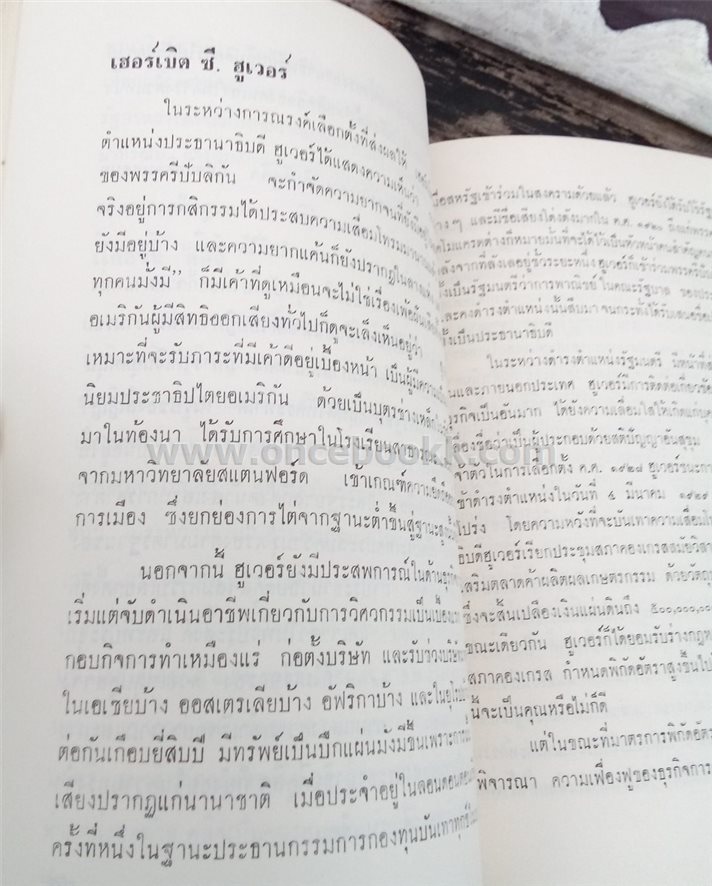 เฮอร์เบิต ซี. ฮูเวอร์
ในระหว่างการณรงค์เลือกตั้งที่ส่งผลให้
ตำแหน่งประธานาธิบดี ฮูเวอร์ได้แสดงความเห็นว่า
ของพรรครีปับลิกัน จะกำจัดความยากจนที่ยัง
จริงอยู่การกสิกรรมได้ประสบความเสื่อมโทรมมา
ยังมีอยู่บ้าง และความยากแค้นก็ยังปรากฏในลาง
ทุกคนมั่งมี” ก็มีเค้าที่ดูเหมือนจะไม่ใช่เรื่องเพ้อฝัน
อเมริกันผู้มีสิทธิออกเสียงทั่วไปก็ดูจะเล็งเห็นอยู่ว่า
เหมาะที่จะรับภาระที่มีเค้าดีอยู่เบื้องหน้า เป็นผู้มีความ
นิยมประชาธิปไตยอเมริกัน ด้วยเป็นบุตรช่างเหล็ก
มาในท้องนา ได้รับการศึกษาในโรงเรียน
จากมหาวิทยาลัยสแตนฟอร์ด เข้าเกณฑ์ความ
การเมือง ซึ่งยกย่องการไต่จากฐานะต่ำขึ้นสู่ฐานะสูง
นอกจากนี้ ฮูเวอร์ยังมีประสพการณ์ในด้านธุรกิจ
เริ่มแต่จับดำเนินอาชีพเกี่ยวกับการวิศวกรรมเป็นเบื้องแรก
กอบกิจการทำเหมืองแร่ ก่อตั้งบริษัท และรับช่วงบริษัท
ในเอเซียบ้าง ออสเตรเลียบ้าง อัฟริกาบ้าง และในยุโรป
ต่อกันเกือบยี่สิบปี มีทรัพย์เป็นปึกแผ่นมั่งมีขึ้นเพราะการ
เสียงปรากฏแก่นานาชาติ เมื่อประจำอยู่ในลอนดอน
ครั้งที่หนึ่งในฐานะประธานกรรมการกองทุนบันเทาทุกข์
สหรัฐเข้าร่วมในสงครามด้วยแล้ว ฮูเวอร์ยังได้รับใช้รัฐ
และมีชื่อเสียงโด่งดังมากใน ค.ศ. ๑๙๒๐
ลังจากที่ลังเลอยู่ชั่วระยะหนึ่ง ฮูเวอร์ก็เข้าร่วมพรรครีปับ
เป็นรัฐมนตรีว่าการพาณิชย์ ในคณะรัฐบาล ของประ
และคงดำรงตำแหน่งนั้นสืบมา จนกระทั่งได้รับเสนอชื่อ
เป็นประธานาธิบดี
ในระหว่างดำรงตำแหน่งรัฐมนตรี มีหน้าที่
และภายนอกประเทศ ฮูเวอร์มีการติดต่อเกี่ยวข้อง
ธุรกิจเป็นอันมาก ได้ยังความเลื่อมใสให้เกิดแก่บุค
ลือชื่อว่าเป็นผู้ประกอบด้วยสติปัญญาอันสุขุม
ตัวในการเลือกตั้ง ค.ศ. ๑๙๒๘ ฮูเวอร์ชนะการ
ดำรงตำแหน่งในวันที่ ๔ มีนาคม ๑๙๒๙
โปร่ง โดยความหวังที่จะบันเทาความเสื่อมโ
ธิบดีฮูเวอร์เรียกประชุมสภาคองเกรสสมัยวิสา
เสริมตลาดค้าผลิตผลเกษตรกรรม ด้วยวัตถุ
ซึ่งจะสิ้นเปลืองเงินแผ่นดินถึง ๕๐๐,๐๐๐,๐๐
ขณะเดียวกัน ฮูเวอร์ก็ได้ยอมรับร่างกฎห
สภาคองเกรส กำหนดพิกัดอัตราสูงขึ้นไป
นี้จะเป็นคุณหรือไม่ก็ดี
แต่ในขณะที่มาตรการพิกัดอัตร
พิจารณา ความเฟื่องฟูของธุรกิจการ
www.oncebookk.com